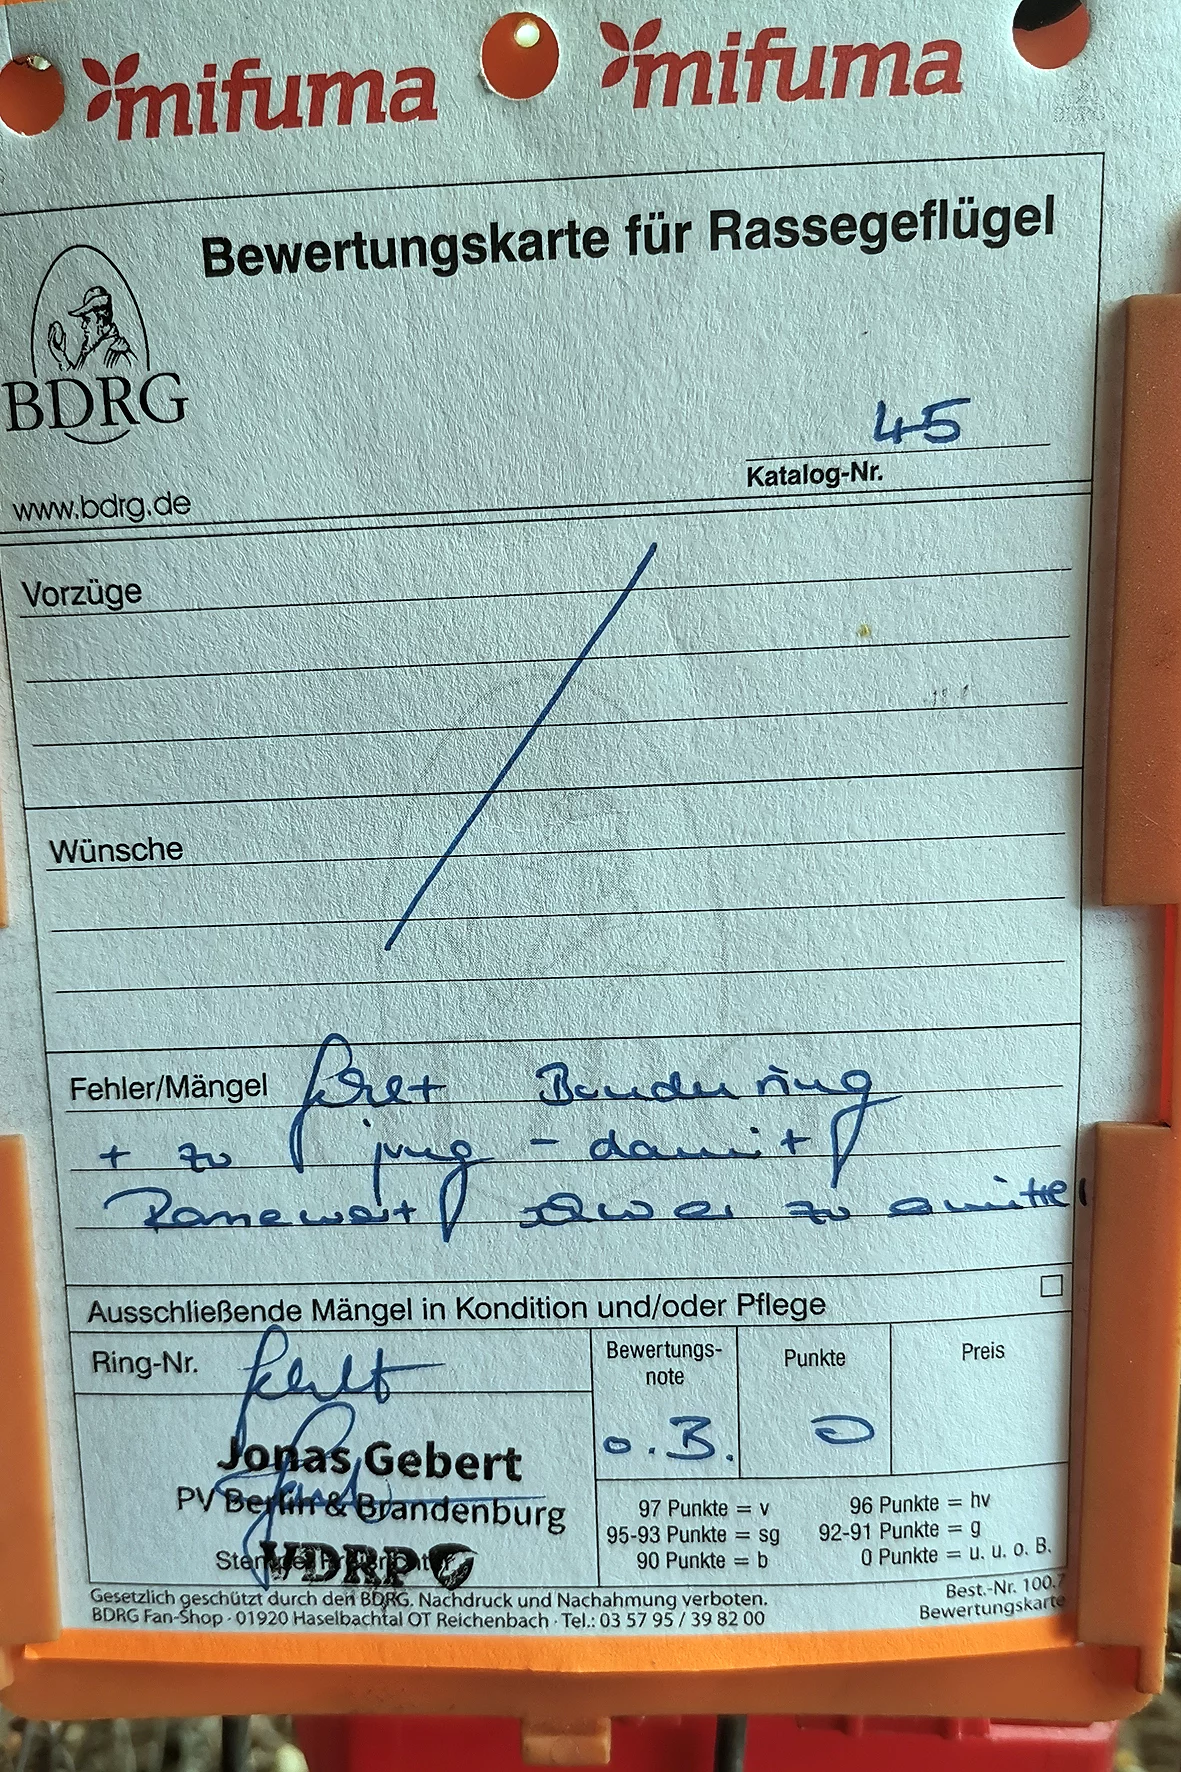 mifuma mifuma
Bewertungskarte für Rassegeflügel
BDRG
45
Katalog-Nr.
www.bdrg.de
Vorzüge
Wünsche
Fehler/Mängel fehlt Bundesring
+ zu jung - damit
Rassewert schwer zu ermittel
Ausschließende Mängel in Kondition und/oder Pflege
Ring-Nr. fehlt
Bewertungs-
note
o.B.
Punkte
0
Preis
Jonas Gebert
PV Berlin & Brandenburg
VDRP
97 Punkte = v 96 Punkte = hv
95-93 Punkte = sg 92-91 Punkte = g
90 Punkte = b 0 Punkte = u. u. o. B.
Gesetzlich geschützt durch den BDRG. Nachdruck und Nachahmung verboten.
BDRG Fan-Shop · 01920 Haselbachtal OT Reichenbach · Tel.: 03 57 95 / 39 82 00
Best.-Nr. 100.7
Bewertungskarte